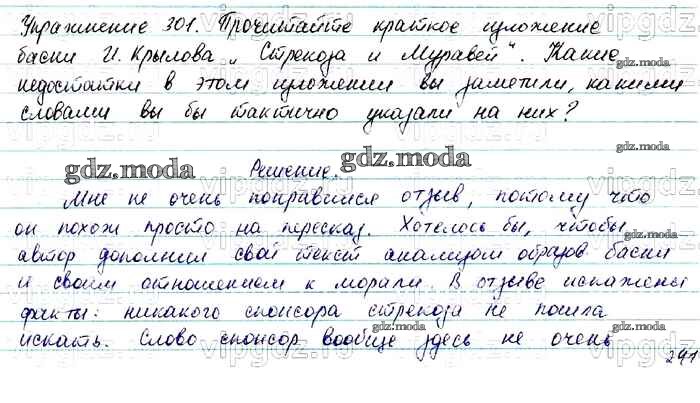 Упражнение 301. Прочитайте краткое изложение
басни И. Крылова „Стрекоза и Муравей". Какие
недостатки в этом изложении вы заметили, какими
словами вы бы тактично указали на них?
gdz.moda
gdz.moda
Решение.
gdz.moda
Мне не очень понравился отзыв, потому что
он похож просто на пересказ. Хотелось бы, чтобы
gdz.moda
автор дополнил свой текст анализом образов басни
и своим отношением к морали. В отзыве искажены
факты: никакого спонсора стрекоза не пошла
искать. Слово спонсор вообще здесь не очень
gdz.moda
gdz.moda
241